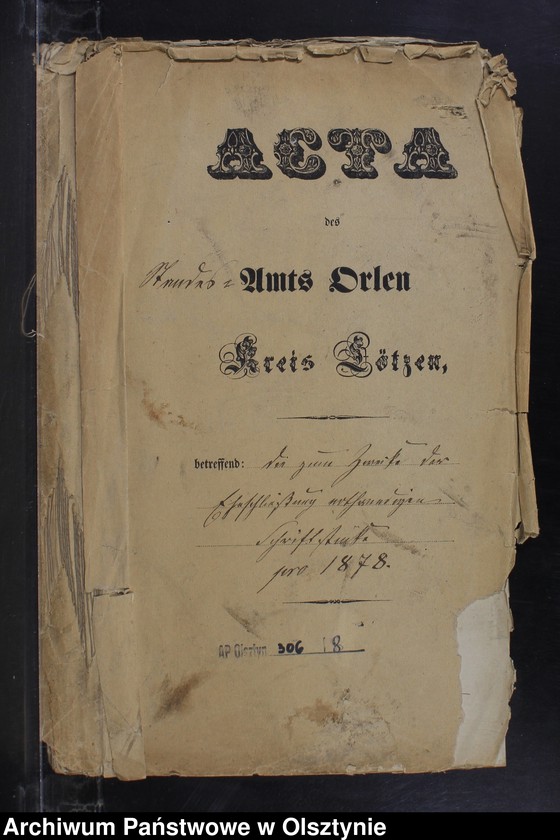 ACTA
des
Standes=Amts Orlen
Kreis Lötzen,
betreffend: die zum Zwecke der
Eheschließung nothwendigen
Schriftstücke
pro 1878.
AP Olsztyn 306 / 8
Archiwum Państwowe w Olsztynie